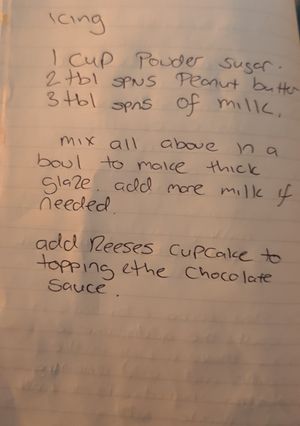 Icing
1 cup Powder sugar.
2 tbl spns Peanut butter
3 tbl spns of milk.
mix all above in a
boul to make thick
glaze. add more milk if
needed.
add Reeses cupcake to
topping & the Chocolate
sauce.